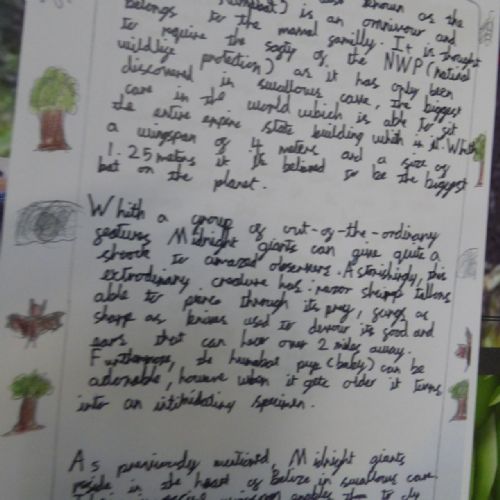 known as the
belongs to the mamal familly. It is thought
to require the safty of the NWP (natinal
wildlife protection) as it has only been
discovered in swallows cave, the biggest
cave in the world which is able to fit
the entire empire state building which in it. Whith
a wingspan of 4 meters and a size of
1.25 meters it is believed to be the biggest
bat on the planet.
Whith a group of out-of-the-ordinary
features Midnight giants can give quite a
shock to amazed observers. Astonishingly, this
extrodinary creature has: razor sharp tallons
able to pierce through its prey, fangs as
sharp as knives used to devour its food and
ears that can hear over 2 miles away.
Furthermore, the humabat pup (baby) can be
adorable, however when it gets older it turns
into an intimidating specimen.
As previously mentiond, Midnight giants
reside in the heart of Belize in swallows cave.
wingspan enables them to fly